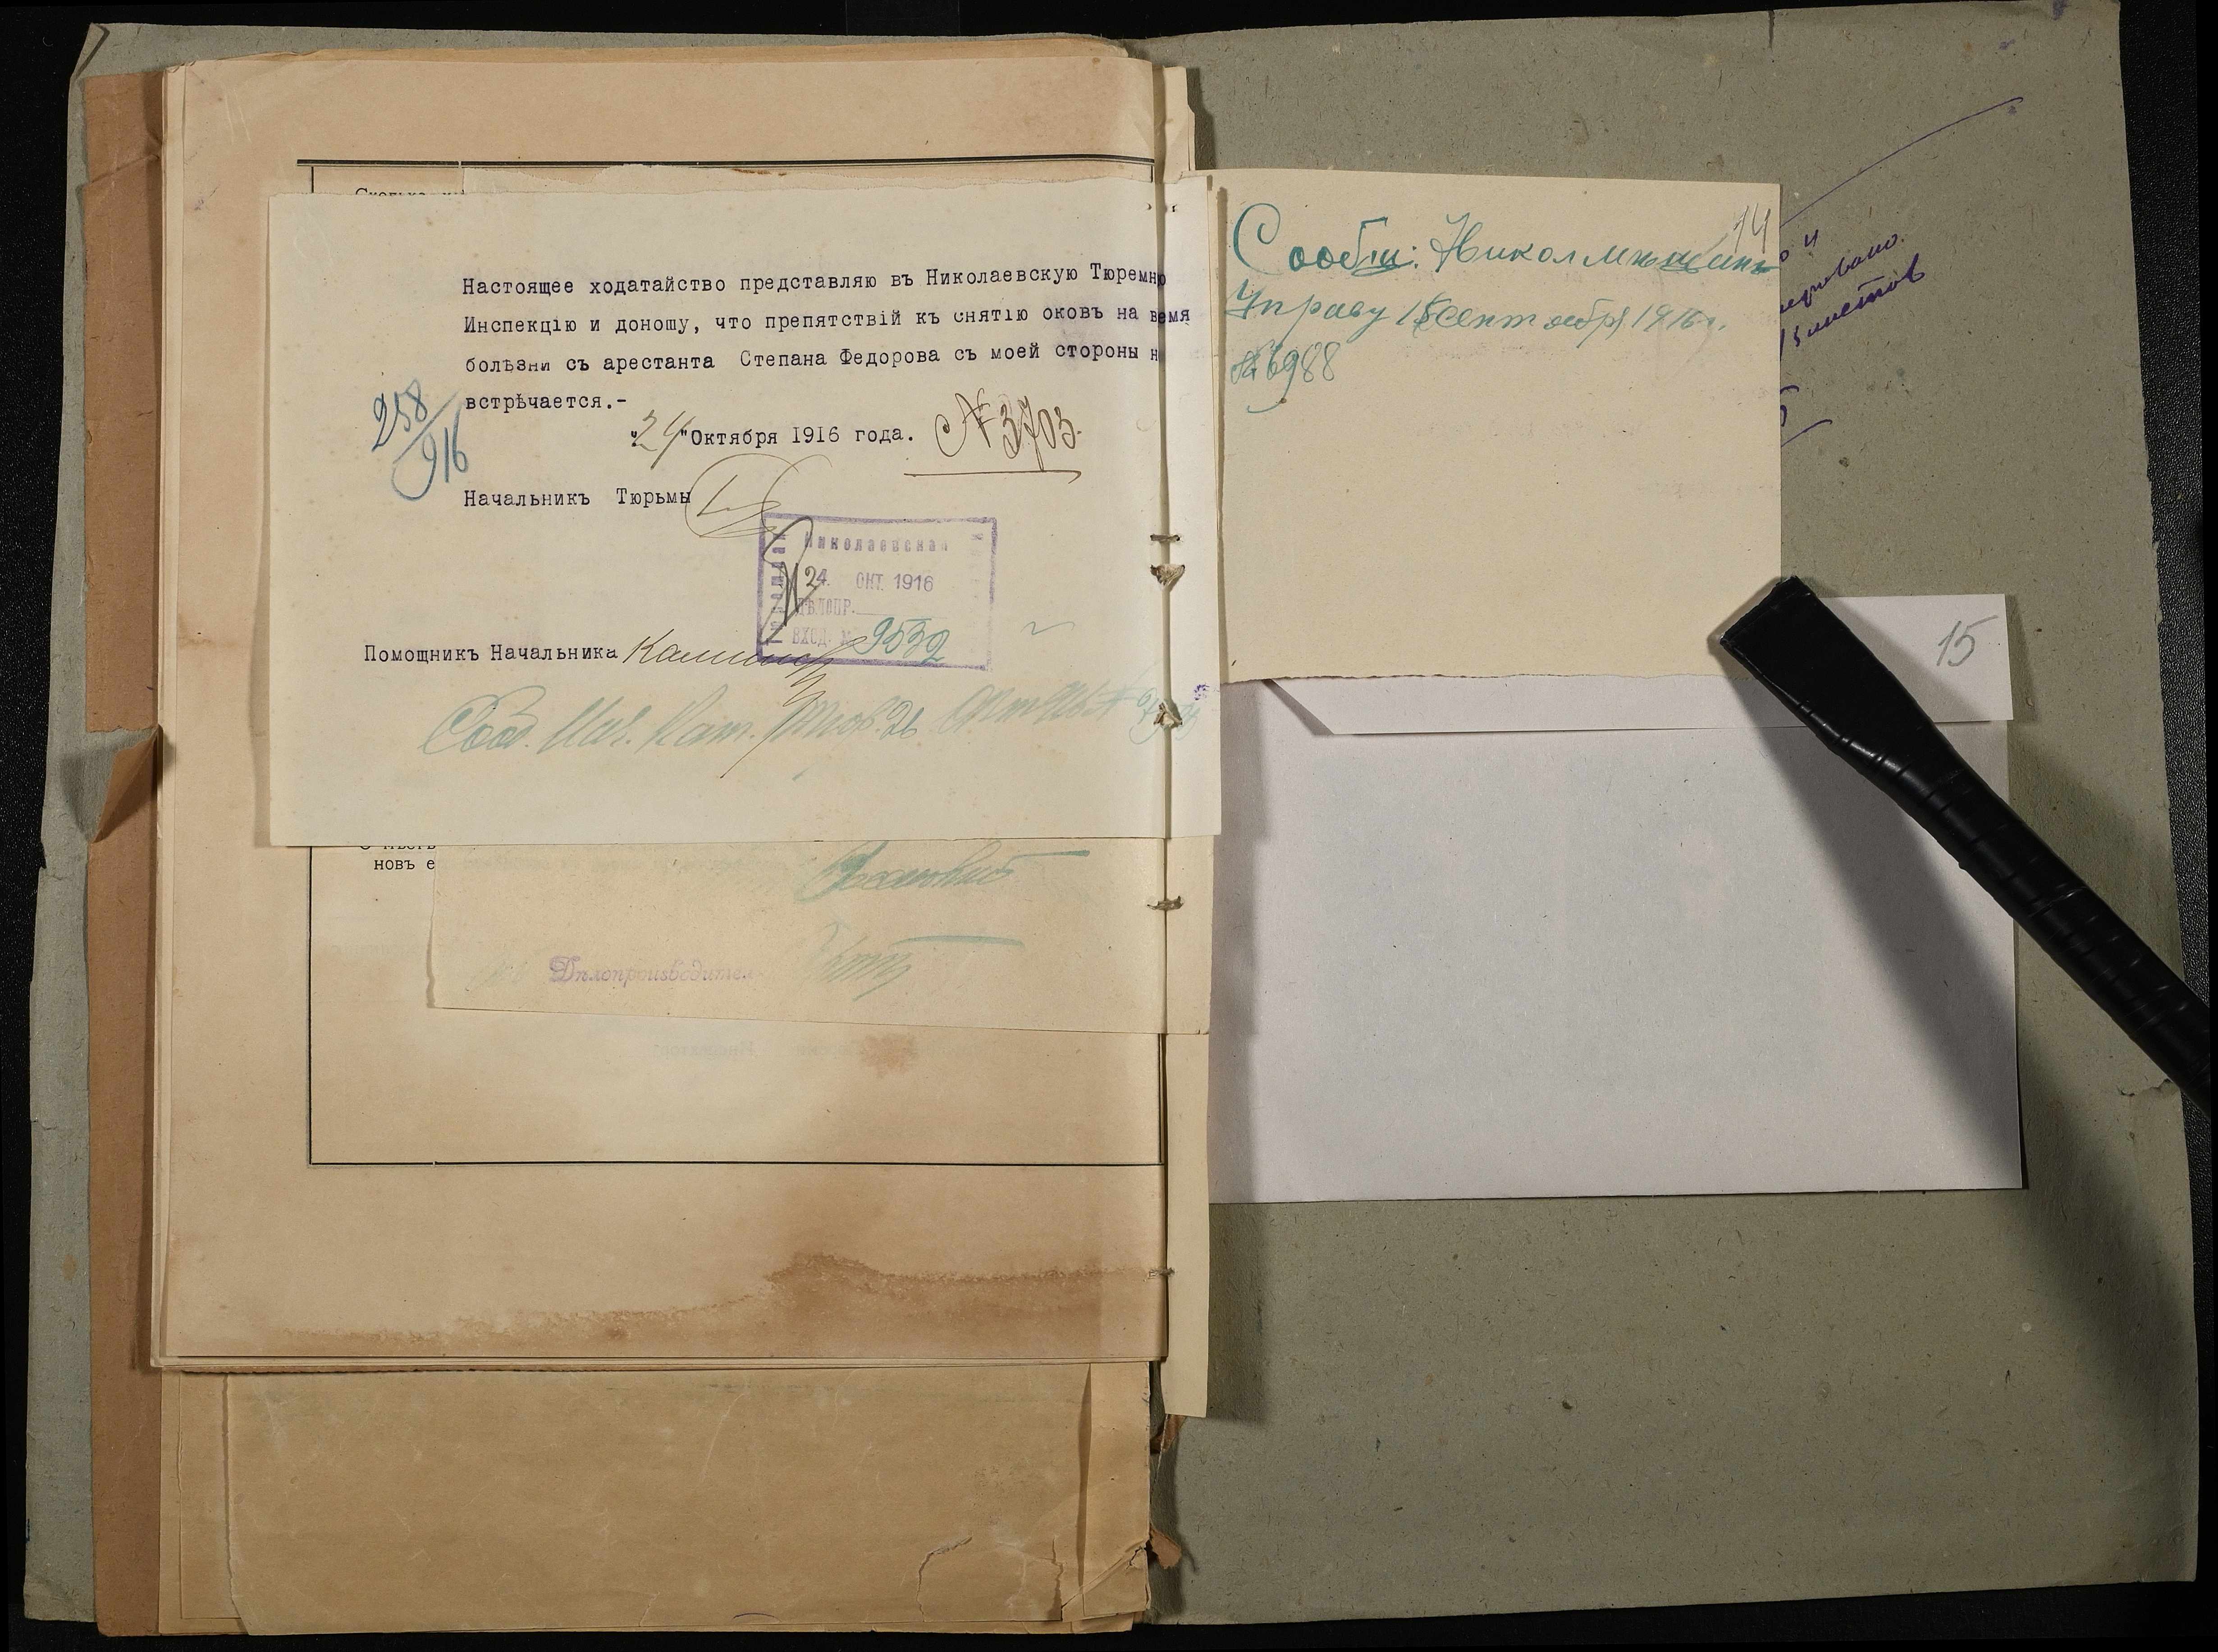 Настоящее ходатайство представляю въ Николаевскую Тюремню
Инспекцію и доношу, что препятствій къ снятію оковъ на вемя
болѣзни съ арестанта Степана Федорова съ моей стороны н
встрѣчается.-
258/916
"24" Октября 1916 года. № 3703.
Начальникъ Тюрьмы
Николаевская
24. ОКТ. 1916
ДѢЛОПР.
ВХОД. № 9532
Помощникъ Начальника
Сооб. Нач. Кат. Тюр. 26 Окт 916
новъ е
Дѣлопроизводител
14
Сообщ: Никол
Управу 15 Сентября 1916 г.
№ 6988
листов
15